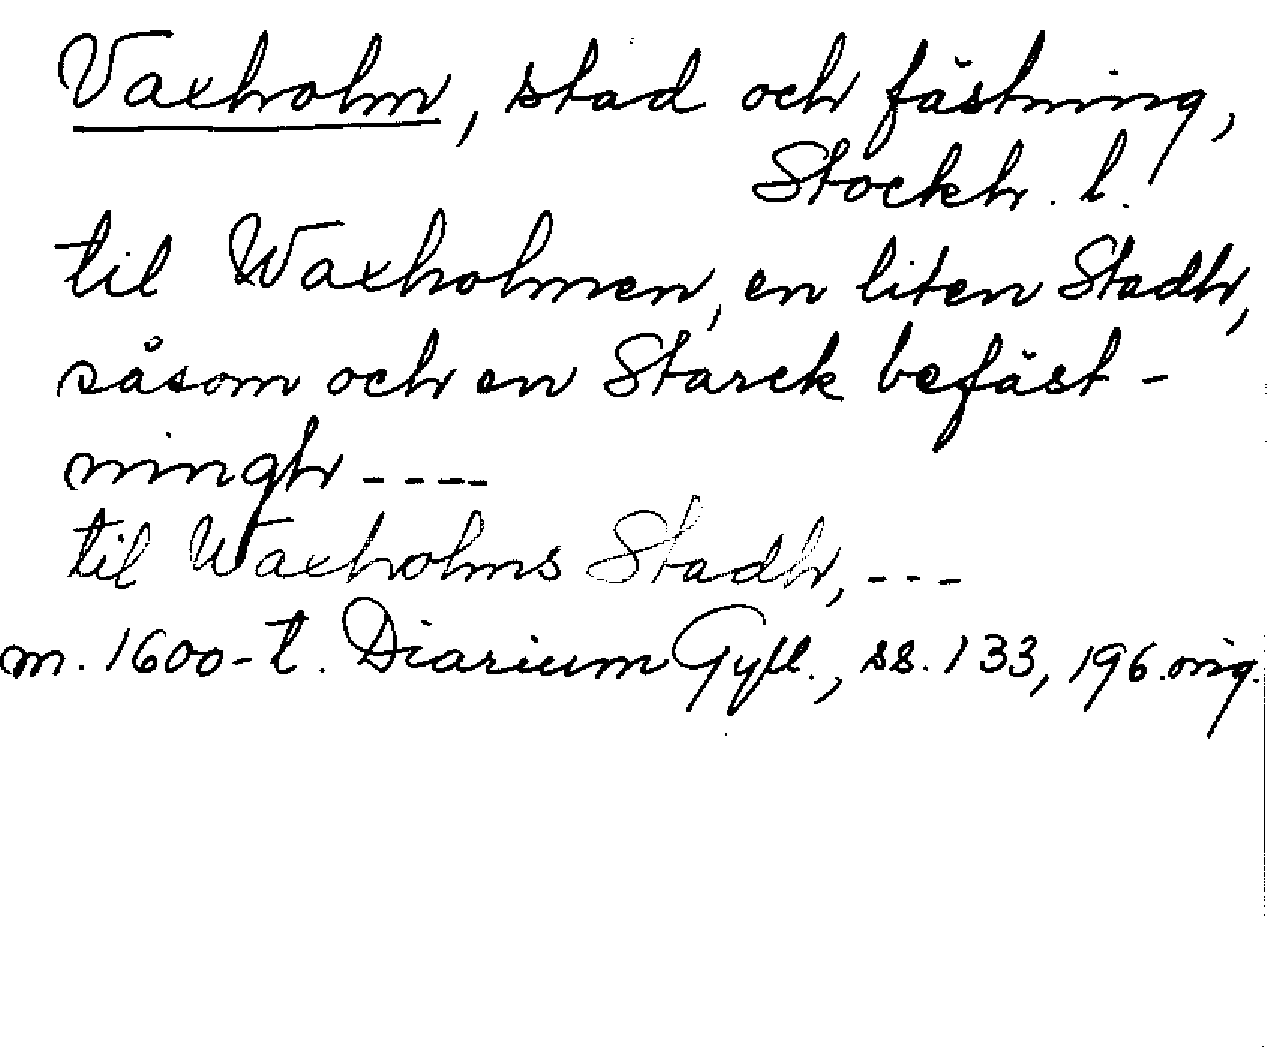 Vaxholm, stad och fästning,
Stockh. l.
til Waxholmen, en liten Stadh,
såsom och en Starck befäst-
ningh ----
til Waxholms Stadh, ---
m. 1600-t. Diarium Gyll., ss. 133, 196 orig.